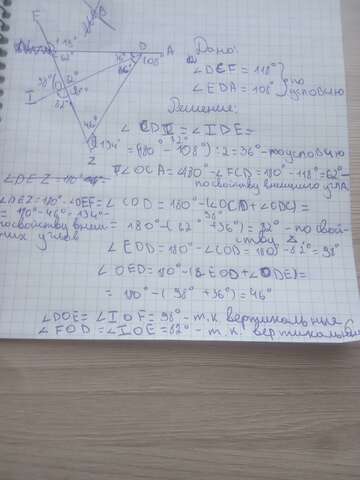 F
118°
62°
36°
D
A
108°
98°
82°
I
46°
134°
Z
Дано:
∠DCF = 118°
∠EDA = 108°
по
условию
Решение:
∠CDI = ∠IDE =
= (180° - 108°) : 2 = 36° - по условию
∠OCA = 180° - ∠FCD = 180° - 118° = 62° -
по свойству внешнего угла
∠COD = 180° - (∠OCD + ∠ODC) =
= 180° - (62° + 36°) = 82° - по свой-
ству
∠EOD = 180° - ∠COD = 180° - 82° = 98°
∠OED = 180° - (∠EOD + ∠ODE) =
= 180° - (98° + 36°) = 46°
∠DEZ = 180° - ∠OEF =
= 180° - 46° = 134° -
по свойству внеш-
них углов
∠DOE = ∠IOF = 98° - т.к. вертикальные
∠FOD = ∠IOE = 82° - т.к. вертикальные